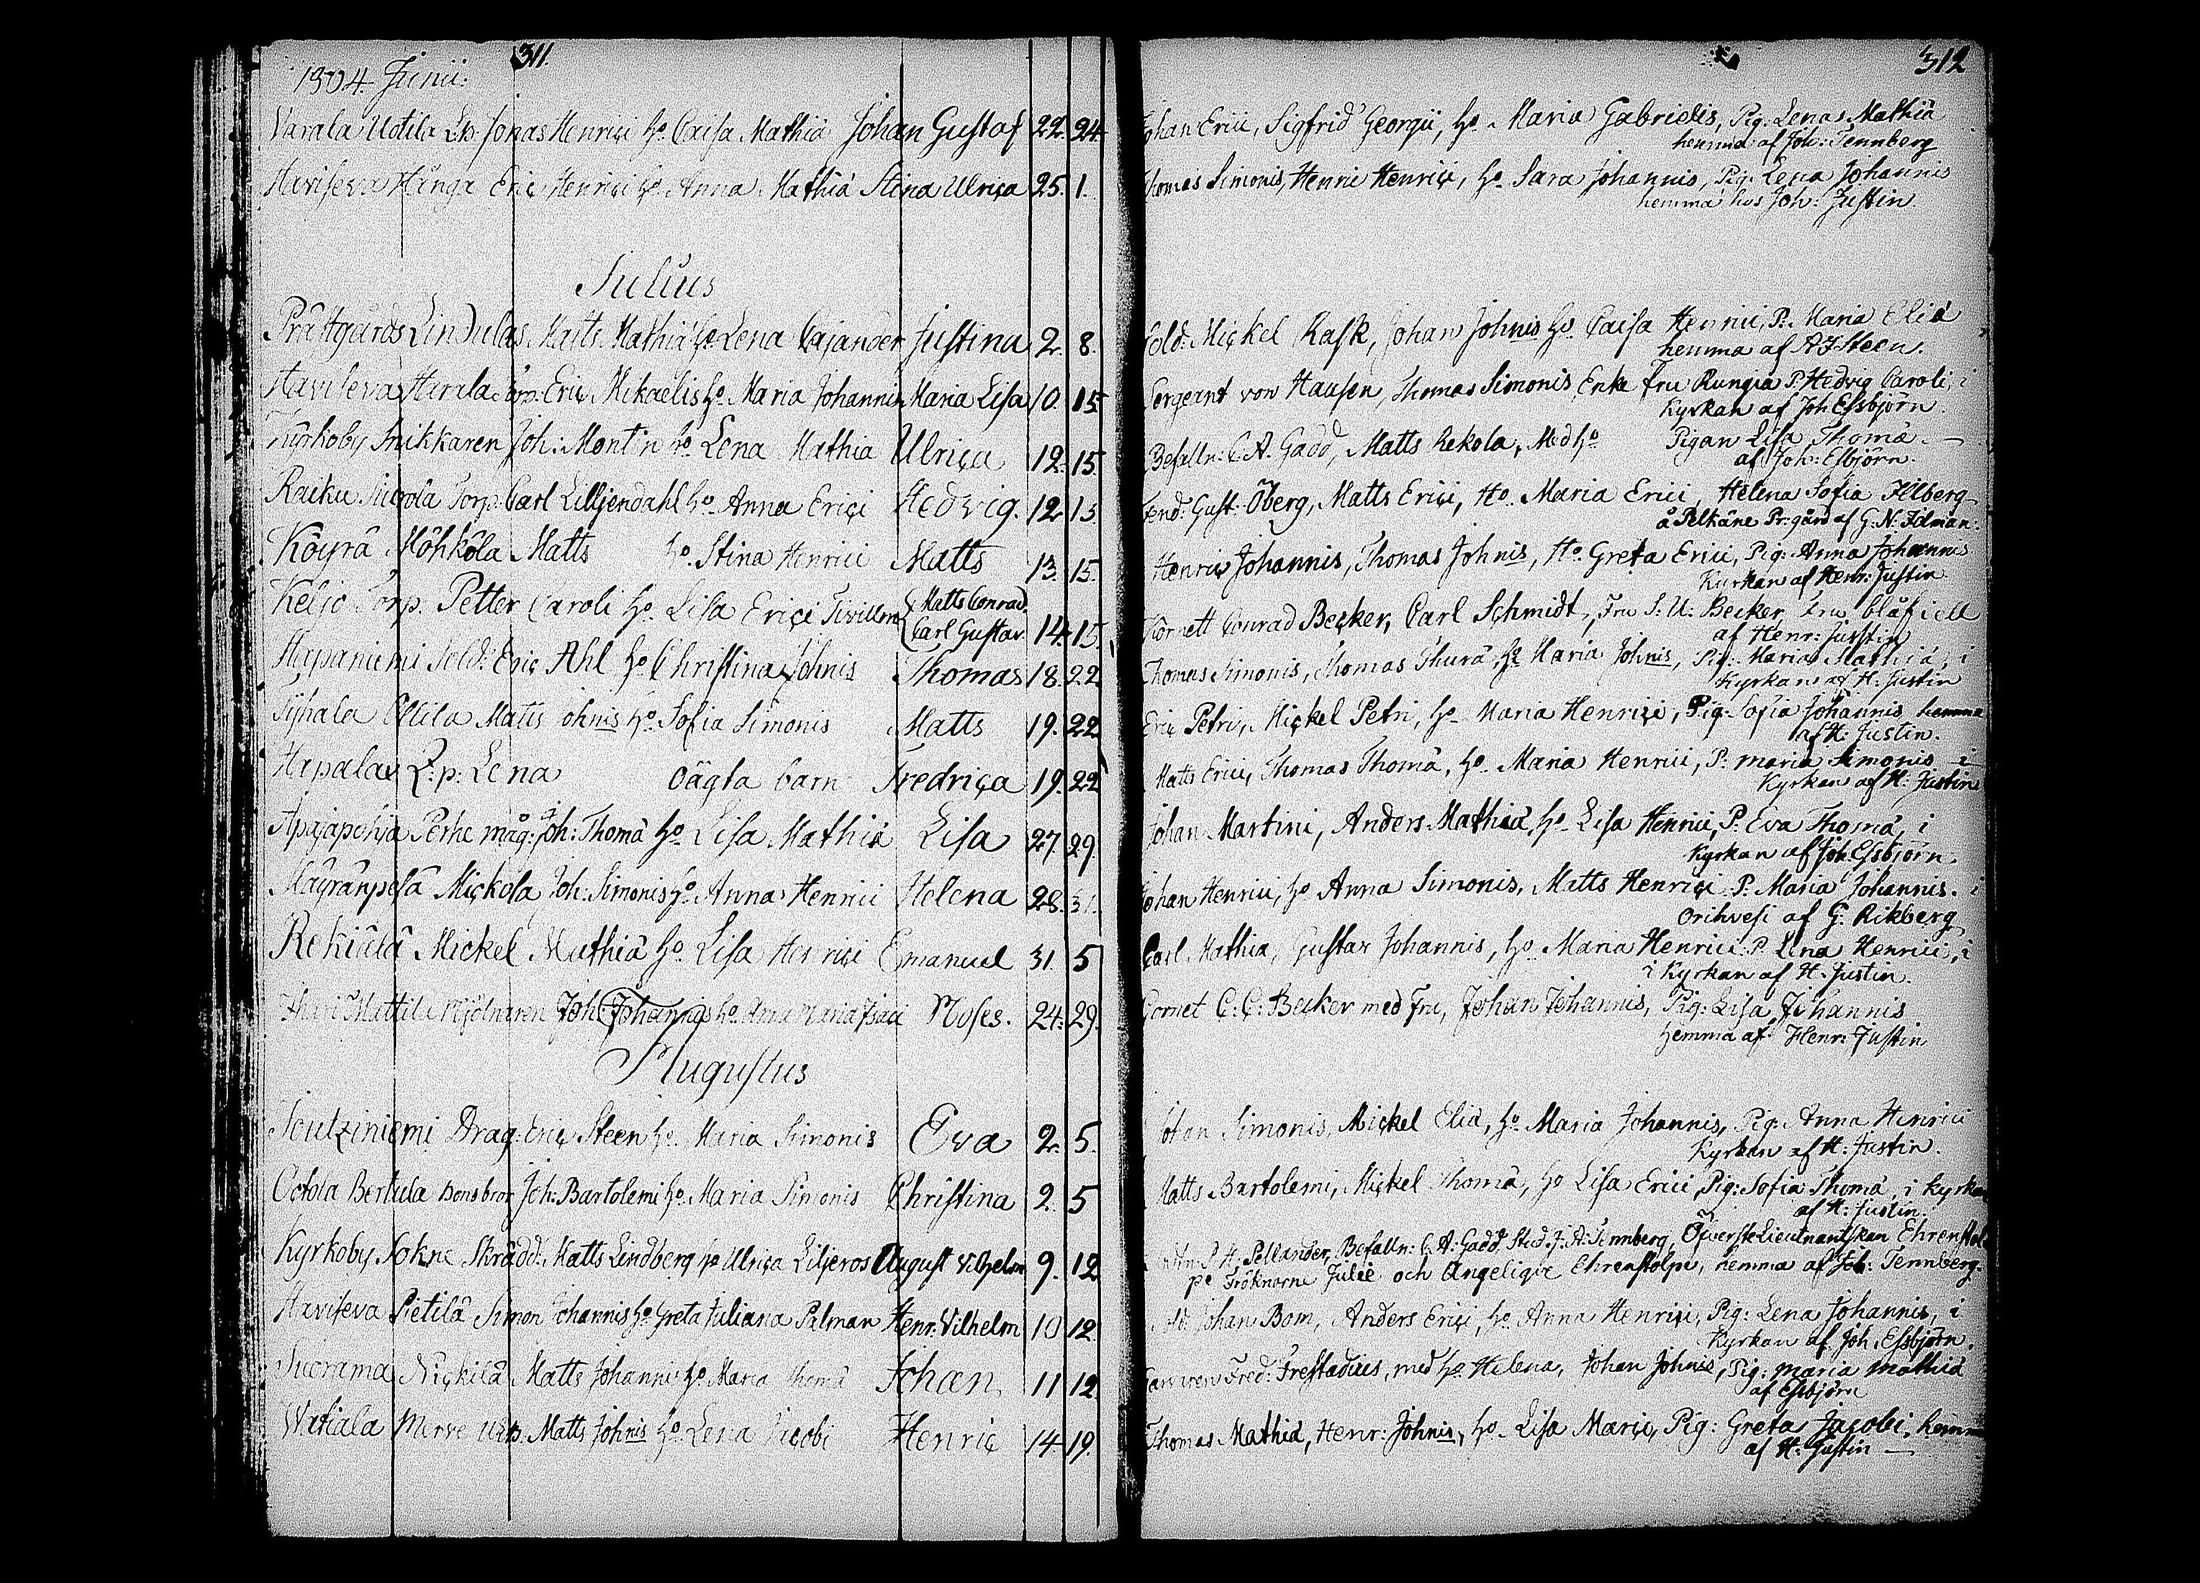 311.
1804. Junii:
Varala Uotila Jonas Henrici ho. Caisa Mathiä Johan Gustaf 22. 24.
Haviseva Hånga Eric Henrici ho. Anna Mathiä Stina Ulrica 25. 1.
Julius
Prästgårds Lindulas Matts Mathiä ho. Lena Cajander Justina 2. 8.
Haviseva Harala Torp. Eric Mikaelis ho. Maria Johannis Maria Lisa 10. 15
Kyrkoby Snikkaren Joh: Montin ho. Lena Mathiä Ulrica 12. 15.
Raiku Torp. Carl Lilljendahl ho. Anna Erici Hedvig. 12 15
Köyrä Möhköla Matts ho. Stina Henrici Matts 13. 15.
Keljo Torp. Petter Caroli ho. Lisa Erici Matts Conrad
Carl Gustav 14. 15.
Hapaniemi Sold: Eric Ahl ho Christina Johnis Thomas 18. 22.
Ollila Matts Johnis ho. Sofia Simonis Matts 19. 22
Lena oägta barn Fredrica 19. 22
Apajapohja Perhe måg: Joh: Thomä ho. Lisa Mathiä Lisa 27 29.
Mäyränperä Mickola Joh. Simonis ho. Anna Henrici Helena 28. 31.
Rekiälä Mickel Mathiä ho. Lisa Henrici Emanuel 31. 5
Mattila Mjölnaren Joh: Johannis ho. Anna Maria Isaci Moses. 24. 29.
Augustus
Drag. Eric Steen ho. Maria Simonis Eva 2. 5.
Bertula Bonsbror Joh: Bartolemi ho. Maria Simonis Christina 2. 5
Kyrkoby Skrädd: Matts Lindberg ho Ulrica Liljeros August Vilhelm 9. 12
Haviseva Pietilä Simon Johannis ho. Greta Juliana Palman Henr: Vilhelm 10 12.
Suorama Nickilä Matts Johannis ho. Maria Thomä Johan 11 12.
Matts Johnis ho. Lena Jacobi Henric 14 19.
312
Johan Erici, Sigfrid Georgii, ho. Maria Gabrielis, Pig. Lena Mathiä
hemma af Joh: Tennberg
Thomas Simonis, Henric Henrici, ho. Sara Johannis, Pig. Lena Johannis
hemma hos Joh: Justin.
Sold: Mickel Rask, Johan Johnis ho. Caisa Henrici, P. Maria Eliä
hemma af A J Steen.
Sergeant von Hausen, Thomas Simonis, Enke fru Rungia P. Hedvig Caroli, i
Kyrkan af Joh Essbjörn.
Befalln: C. A. Gadd, Matts Rekola, Med ho Pigan Lisa Thomä.
af Joh: Esbjörn.
Fend: Gust: Öberg, Matts Erici, Ho. Maria Erici, Helena Sofia
å Pelkäne Pr:gård af G: N: Idman.
Henric Johannis, Thomas Johnis, Ho. Greta Erici, Pig. Anna Johannis
Kyrkan af Henr: Justin
Kornett Conrad Becker, Carl Schmidt, Fru S: U: Becker, Fru Blåfield
af Henr: Justin
Thomas Simonis, Thomas Thurä, ho. Maria Johnis, Pig. Maria Mathiä, i
Kyrkan af H: Justin
Eric Petri, Mickel Petri, ho. Maria Henrici, Pig. Sofia Johannis hemma
af H: Justin.
Matts Erici, Thomas Thomä, ho. Maria Henrici, P. Maria Simonis i
Kyrkan af H: Justin
Johan Martini, Anders Mathiä, ho. Lisa Henrici, P. Eva Thomä, i
Kyrkan af Joh Essbjörn.
Johan Henrici, ho Anna Simonis, Matts Henrici P. Maria Johannis. i
Orihvesi af G: Rikberg
Carl Mathiä, Gustav Johannis, ho. Maria Henrici P. Lena Henrici, i
i Kyrkan af H. Justin.
Cornet C: C: Becker med Fru, Johan Johannis, Pig: Lisa Johannis
hemma af Henr: Justin
Johan Simonis, Mickel Eliä, ho. Maria Johannis, Pig: Anna Henrici
Kyrkan af H: Justin.
Matts Bartolemi, Mickel Thomä, ho Lisa Erici, Pig: Sofia Thomä, i Kyrkan
af H: Justin.
Sellander, Befalln: C. A: Gadd, Stud. J: A: Tennberg, Öfverste Lieutnantskan
Fröknarne Julie och Angelique Ehrenstolpe, hemma af Joh: Tennberg.
Johan Bom, Anders Erici, ho. Anna Henrici, Pig: Lena Johannis, i
Kyrkan af Joh, Essbjörn.
Fred: Frestadius, med ho. Helena, Johan Johnis, Pig: Maria Mathiä
af Essbjörn
Thomas Mathiä, Henr: Johnis, ho. Lisa Marci, Pig: Greta Jacobi, hemma
af H. Justin